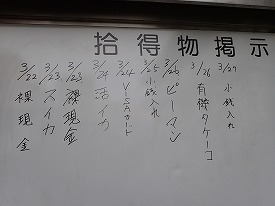 拾得物掲示
3/22 裸現金
3/23 スイカ
3/23 裸現金
3/24 活イカ
3/24 VISAカード
3/25 小銭入れ
3/26 ピーマン
3/26 有機タケーコ
3/27 小銭入れ